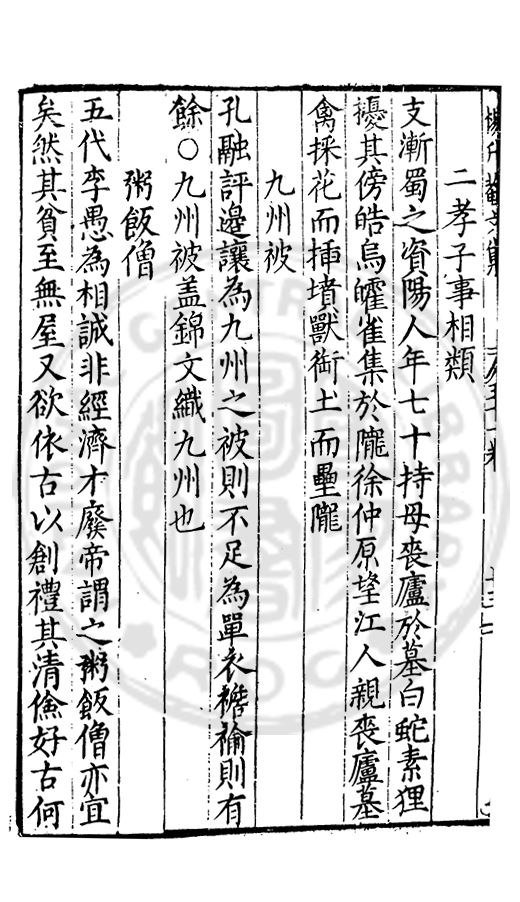 二孝子事相類
支漸蜀之資陽人年七十持母喪廬於墓白蛇素狸
擾其傍皓烏皬雀集於隴徐仲原望江人親喪廬墓
禽採花而插堵獸銜土而壘隴
九州被
孔融評邊讓為九州之被則不足為單衣襜褕則有
餘○九州被盖錦文織九州也
粥飯僧
五代李愚為相誠非經濟才廢帝謂之粥飯僧亦宜
矣然其貧至無屋又欲依古以創禮其清儉好古何